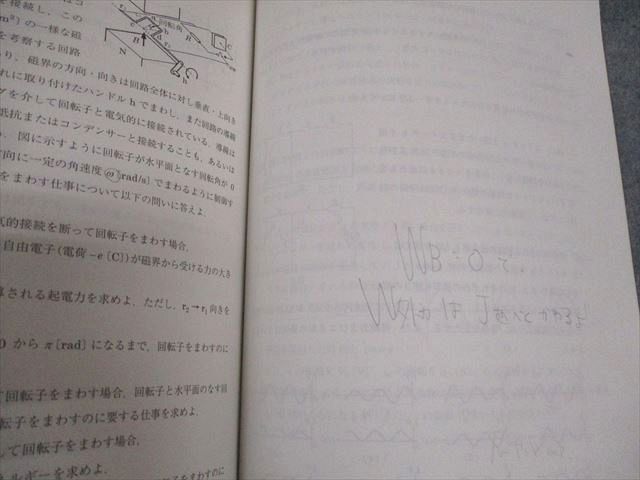 を接続し，この
m²）の一様な磁
を考察する回路
り，磁界の方向・向きは回路全体に対し垂直・上向き
れに取り付けたハンドル h でまわし，また回路の導線
グを介して回転子と電気的に接続されている．導線は
抵抗またはコンデンサーと接続することも，あるいは
図に示すように回転子が水平面となす回転角が 0
方向に一定の角速度 ω〔rad/s〕でまわるように制御す
をまわす仕事について以下の問いに答えよ．
気的接続を断って回転子をまわす場合，
自由電子（電荷 −e〔C〕）が磁界から受ける力の大き
算される起電力を求めよ．ただし，r₂→r₁ 向きを
0 から π〔rad〕になるまで，回転子をまわすのに
て回転子をまわす場合，回転子と水平面のなす回
転子をまわすのに要する仕事を求めよ．
して回転子をまわす場合，
ネルギーを求めよ．
回転角
B
N
h
WB・0 で．
W外力 は